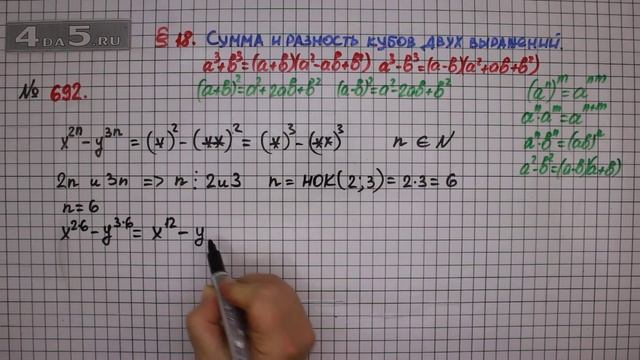 4DA5.RU
§ 18. Сумма и разность кубов двух выражений.
a³+b³=(a+b)(a²-ab+b²) a³-b³=(a-b)(a²+ab+b²)
№ 692. (a+b)²=a²+2ab+b² (a-b)²=a²-2ab+b²
(aⁿ)ᵐ=aⁿᵐ
aⁿ·aᵐ=aⁿ⁺ᵐ
aⁿ·bⁿ=(ab)ⁿ
a²-b²=(a-b)(a+b)
x²ⁿ-y³ⁿ=(*)²-(**)²=(*)³-(**)³ n∈N
2n и 3n => n⋮2и3 n=НОК(2;3)=2·3=6
n=6
x²·⁶-y³·⁶=x¹²-y